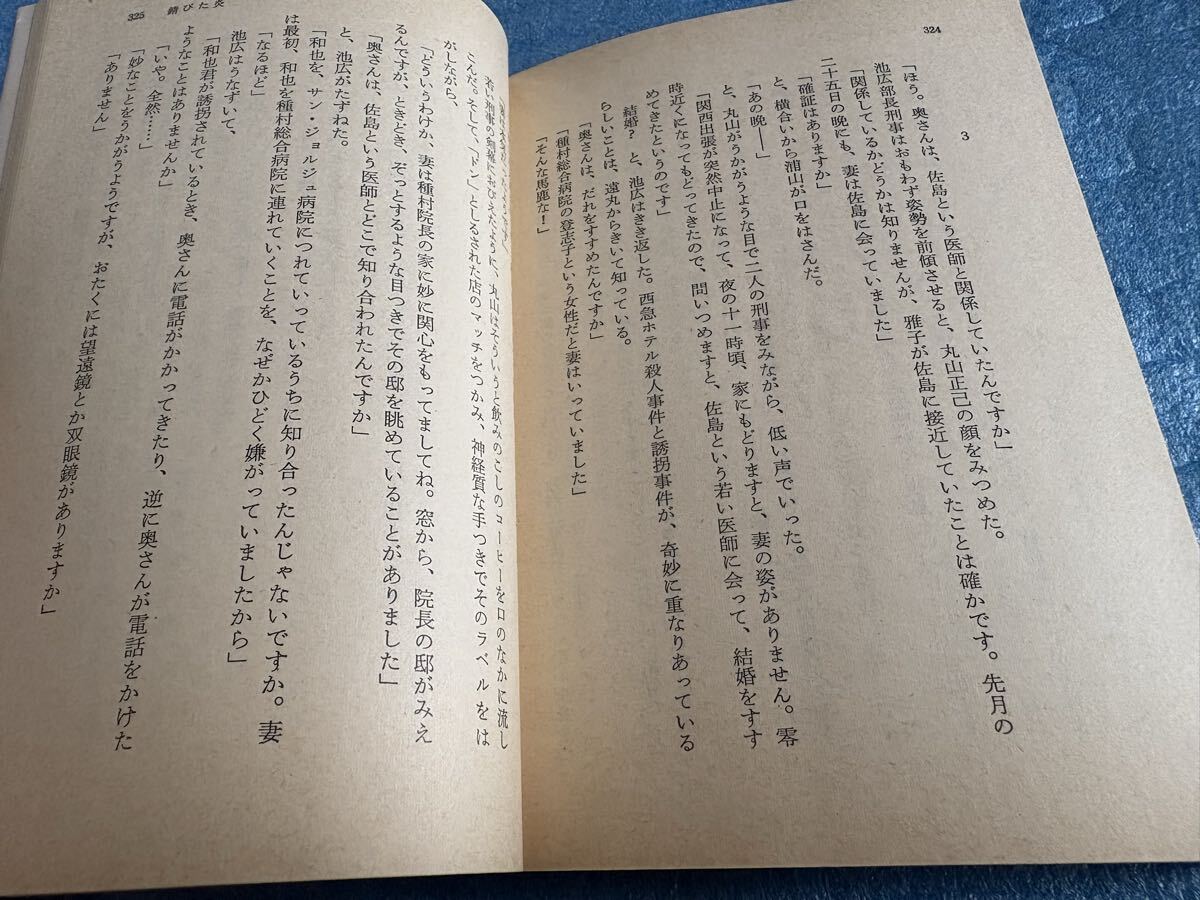 324
3
「ほう。奥さんは、佐島という医師と関係していたんですか」
池広部長刑事はおもわず姿勢を前傾させると、丸山正己の顔をみつめた。
「関係しているかどうかは知りませんが、雅子が佐島に接近していたことは確かです。先月の
二十五日の晩にも、妻は佐島に会っていました」
「確証はありますか」
と、横合いから浦山が口をはさんだ。
「あの晩──」
と、丸山がうかがうような目で二人の刑事をみながら、低い声でいった。
「関西出張が突然中止になって、夜の十一時頃、家にもどりますと、妻の姿がありません。零
時近くになってもどってきたので、問いつめますと、佐島という若い医師に会って、結婚をすす
めてきたというのです」
結婚? と、池広はきき返した。西急ホテル殺人事件と誘拐事件が、奇妙に重なりあっている
らしいことは、遠丸からきいて知っている。
「奥さんは、だれをすすめたんですか」
「種村総合病院の登志子という女性だと妻はいっていました」
「そんな馬鹿な!」
325 錆びた炎
若い刑事の剣幕におびえたように、丸山はそういうと飲みのこしのコーヒーを口のなかに流し
こんだ。そして、「ドン」としるされた店のマッチをつかみ、神経質な手つきでそのラベルをは
がしながら、
「どういうわけか、妻は種村院長の家に妙に関心をもってましてね。窓から、院長の邸がみえ
るんですが、ときどき、ぞっとするような目つきでその邸を眺めていることがありました」
「奥さんは、佐島という医師とどこで知り合われたんですか」
と、池広がたずねた。
「和也を、サン・ジョルジュ病院につれていっているうちに知り合ったんじゃないですか。妻
は最初、和也を種村総合病院に連れていくことを、なぜかひどく嫌がっていましたから」
「なるほど」
池広はうなずいて、
「和也君が誘拐されているとき、奥さんに電話がかかってきたり、逆に奥さんが電話をかけた
ようなことはありませんか」
「いや。全然……」
「妙なことをうかがうようですが、おたくには望遠鏡とか双眼鏡がありますか」
「ありません」